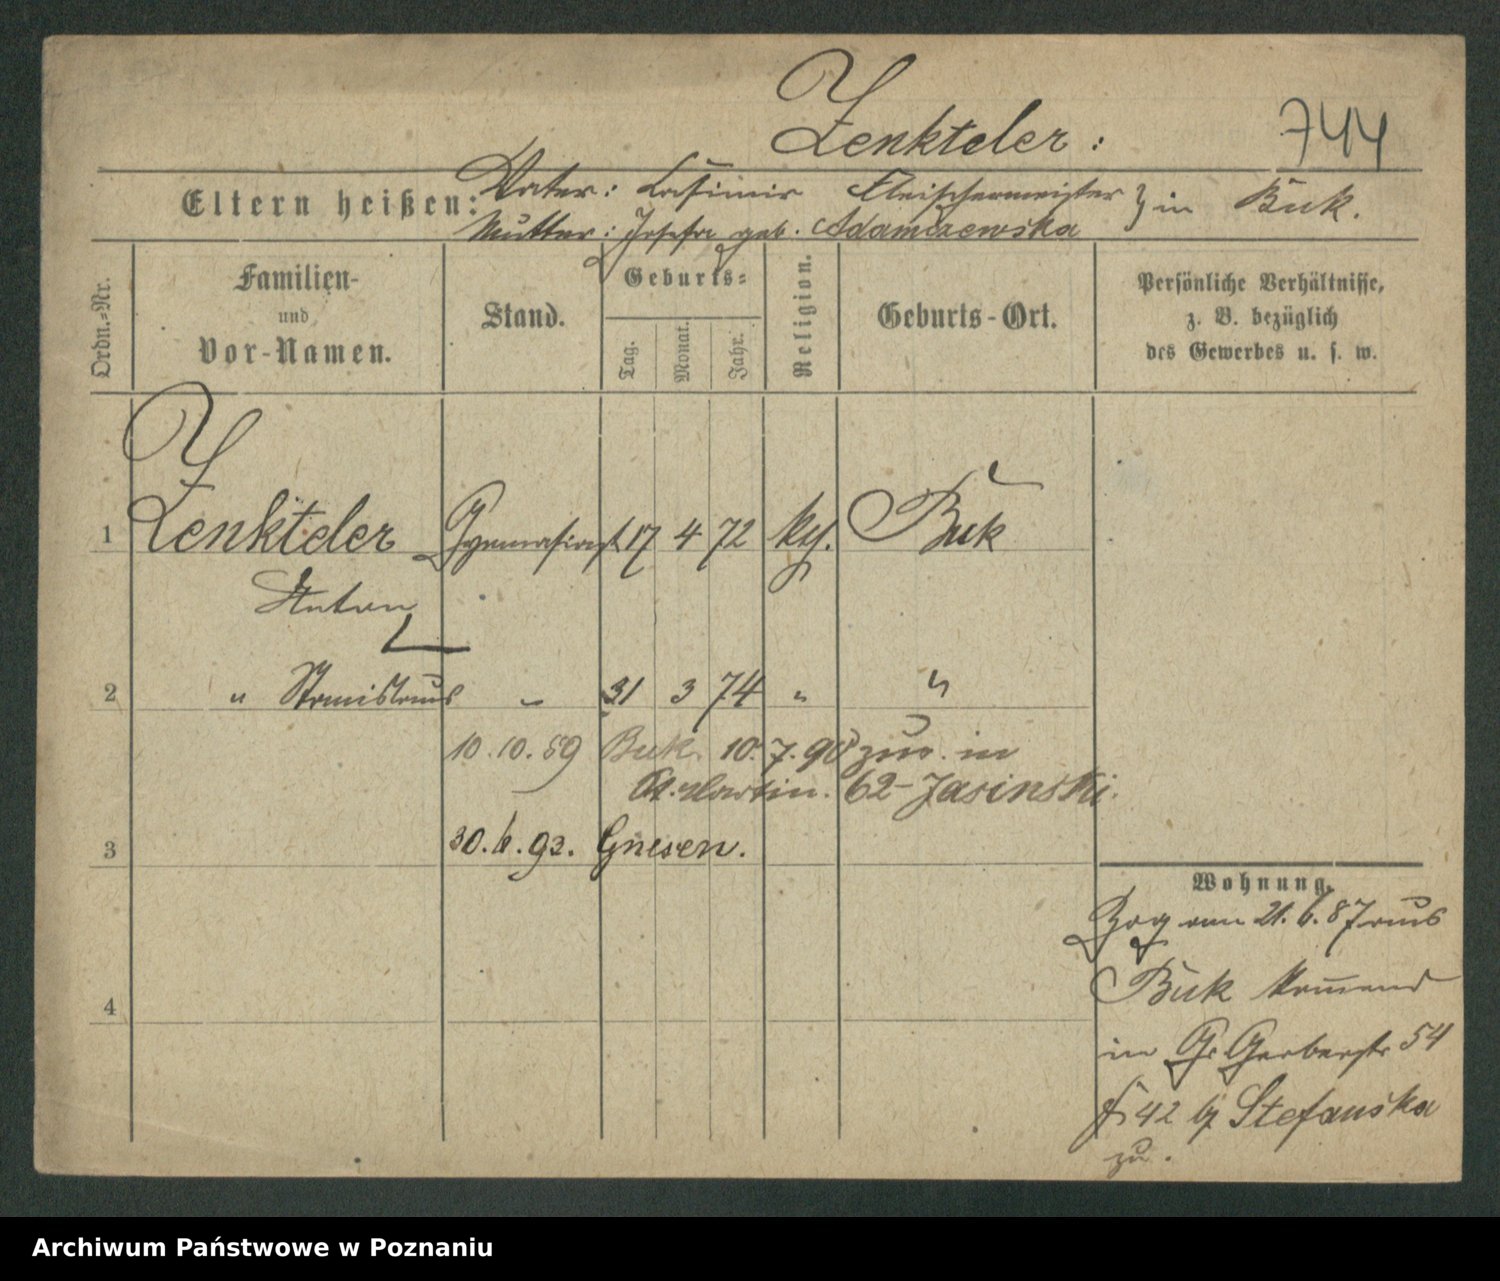 Zenkteler :
744
Eltern heißen:
Vater: Casimir Fleischermeister } in Buk.
Mutter: Josefa geb. Adamczewska
Ordn.=Nr.
Familien-
und
Vor-Namen.
Stand.
Geburts=
Tag.
Monat.
Jahr.
Religion.
Geburts-Ort.
Persönliche Verhältnisse,
z. B. bezüglich
des Gewerbes u. s. w.
1 Zenkteler Gymnasiast 17 4 72 kth. Buk
Anton
2 " Stanislaus - 31 3 74 " "
10.10.89 Buk. 10.7.90 zur. in
St. Martin. 62 Jasinski.
3 30.6.93. Gnesen.
4
Wohnung.
Zog am 21.6.87 aus
Buk kommend
in Gr Gerberstr 54
42 by Stefanska
zu.
Archiwum Państwowe w Poznaniu